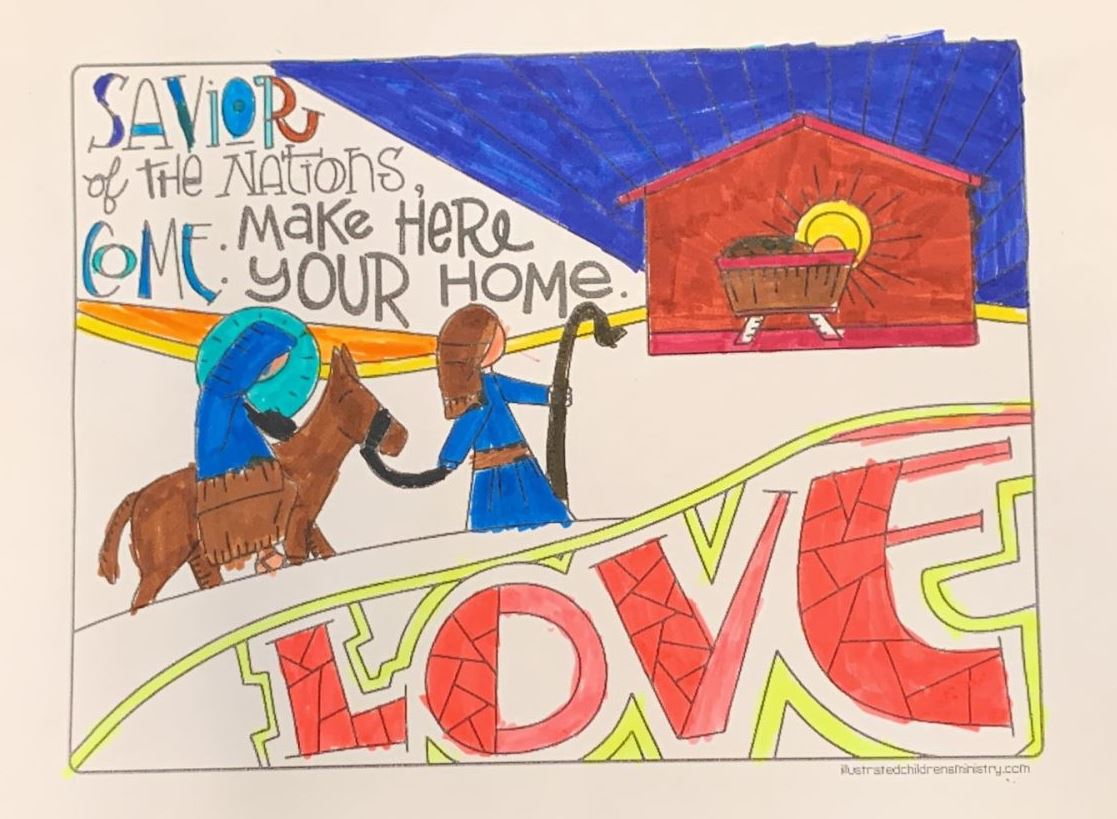 SAVIOR
of THE NATIONS,
COME. MAKE HERE
YOUR HOME.
LOVE
illustratedchildrensministry.com